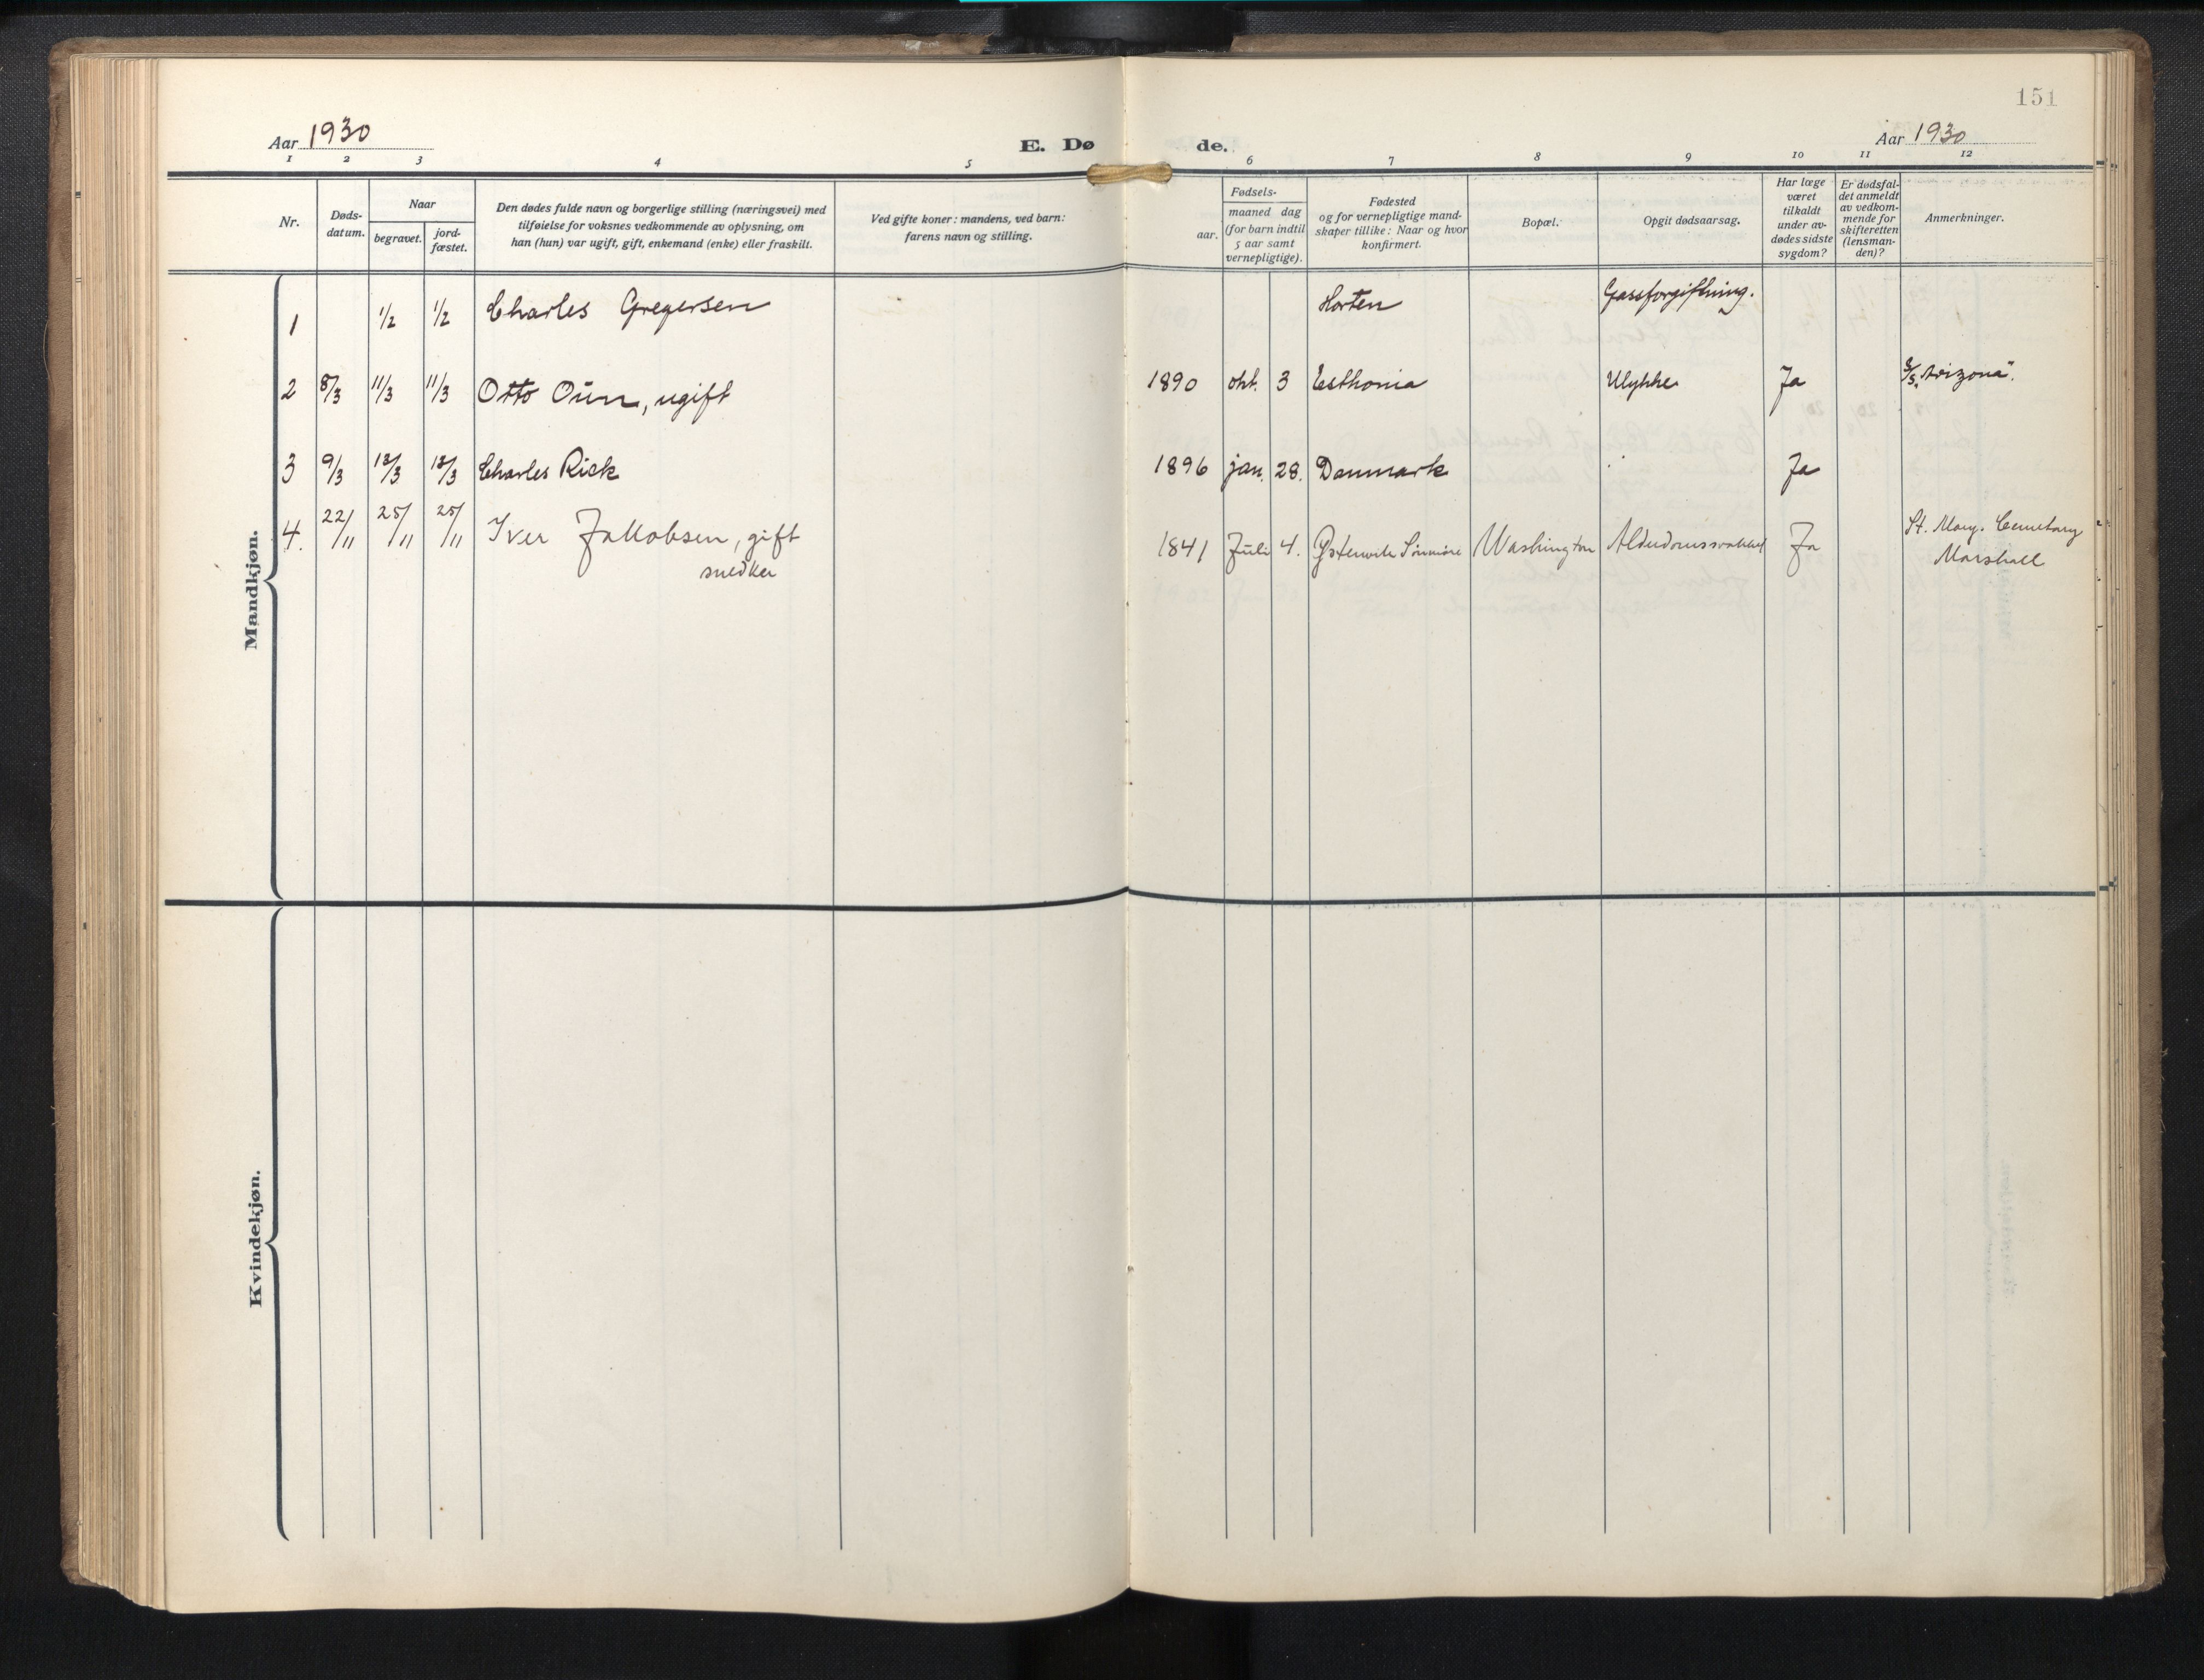 151
Aar 1930
E. Dø
de.
Aar 1930
1 2 3 4 5 6 7 8 9 10 11 12
Nr.
Døds-
datum.
Naar
begravet.
jord-
fæstet.
Den dødes fulde navn og borgerlige stilling (næringsvei) med
tilføielse for voksnes vedkommende av oplysning, om
han (hun) var ugift, gift, enkemand (enke) eller fraskilt.
Ved gifte koner: mandens, ved barn:
farens navn og stilling.
Fødsels-
aar.
maaned dag
(for barn indtil
5 aar samt
vernepligtige).
Fødested
og for vernepligtige mand-
skaper tillike: Naar og hvor
konfirmert.
Bopæl.
Opgit dødsaarsag.
Har læge
været
tilkaldt
under av-
dødes sidste
sygdom?
Er dødsfal-
det anmeldt
av vedkom-
mende for
skifteretten
(lensman-
den)?
Anmerkninger.
Mandkjøn.
1 1/2 1/2 Charles Gregersen Horten Gassforgiftning.
2 8/3 11/3 11/3 Otto Oun, ugift 1890 okt. 3 Esthonia Ulykke Ja S/S. Arizona".
3 9/3 13/3 13/3 Charles Risk 1896 jan. 28. Danmark Ja
4. 22/11 25/11 25/11 Iver Jakobsen, gift 1841 Juli 4. Sönmöre Washington Ja St. Mary. Cemetary
snedker Marshall
Kvindekjøn.